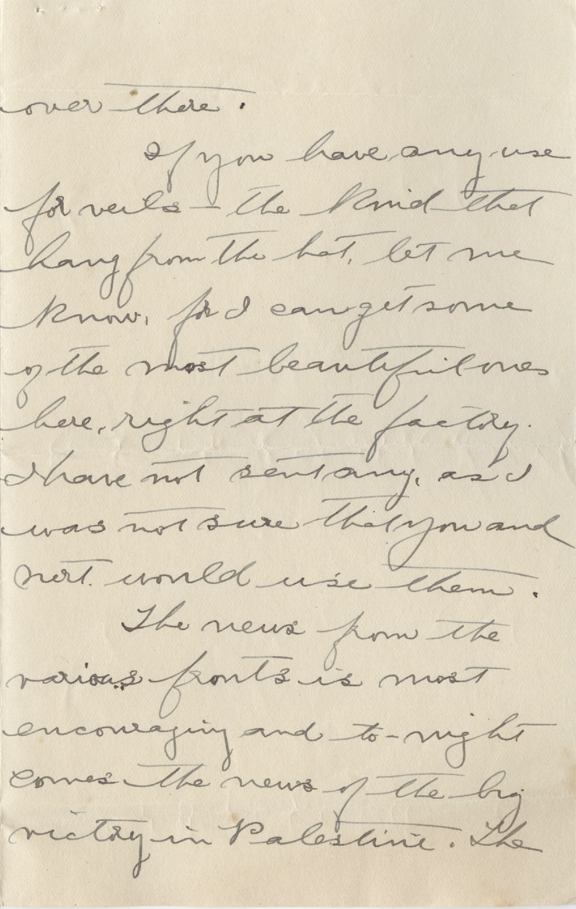 over there.
If you have any use
for veils - the kind that
hang from the hat, let me
know, for I can get some
of the most beautiful ones
here, right at the factory.
I have not sent any, as I
was not sure that you and
would use them.
The news from the
various fronts is most
encouraging and to-night
comes the news of the big
victory in Palestine. The